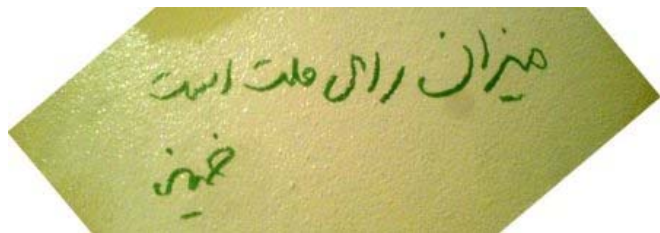 میزان رای ملت است
خمینی